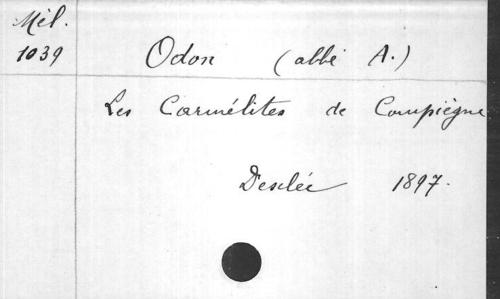 Mél.
1039
Odon (abbé A.)
Les Carmélites de Compiègne
Desclée 1897.